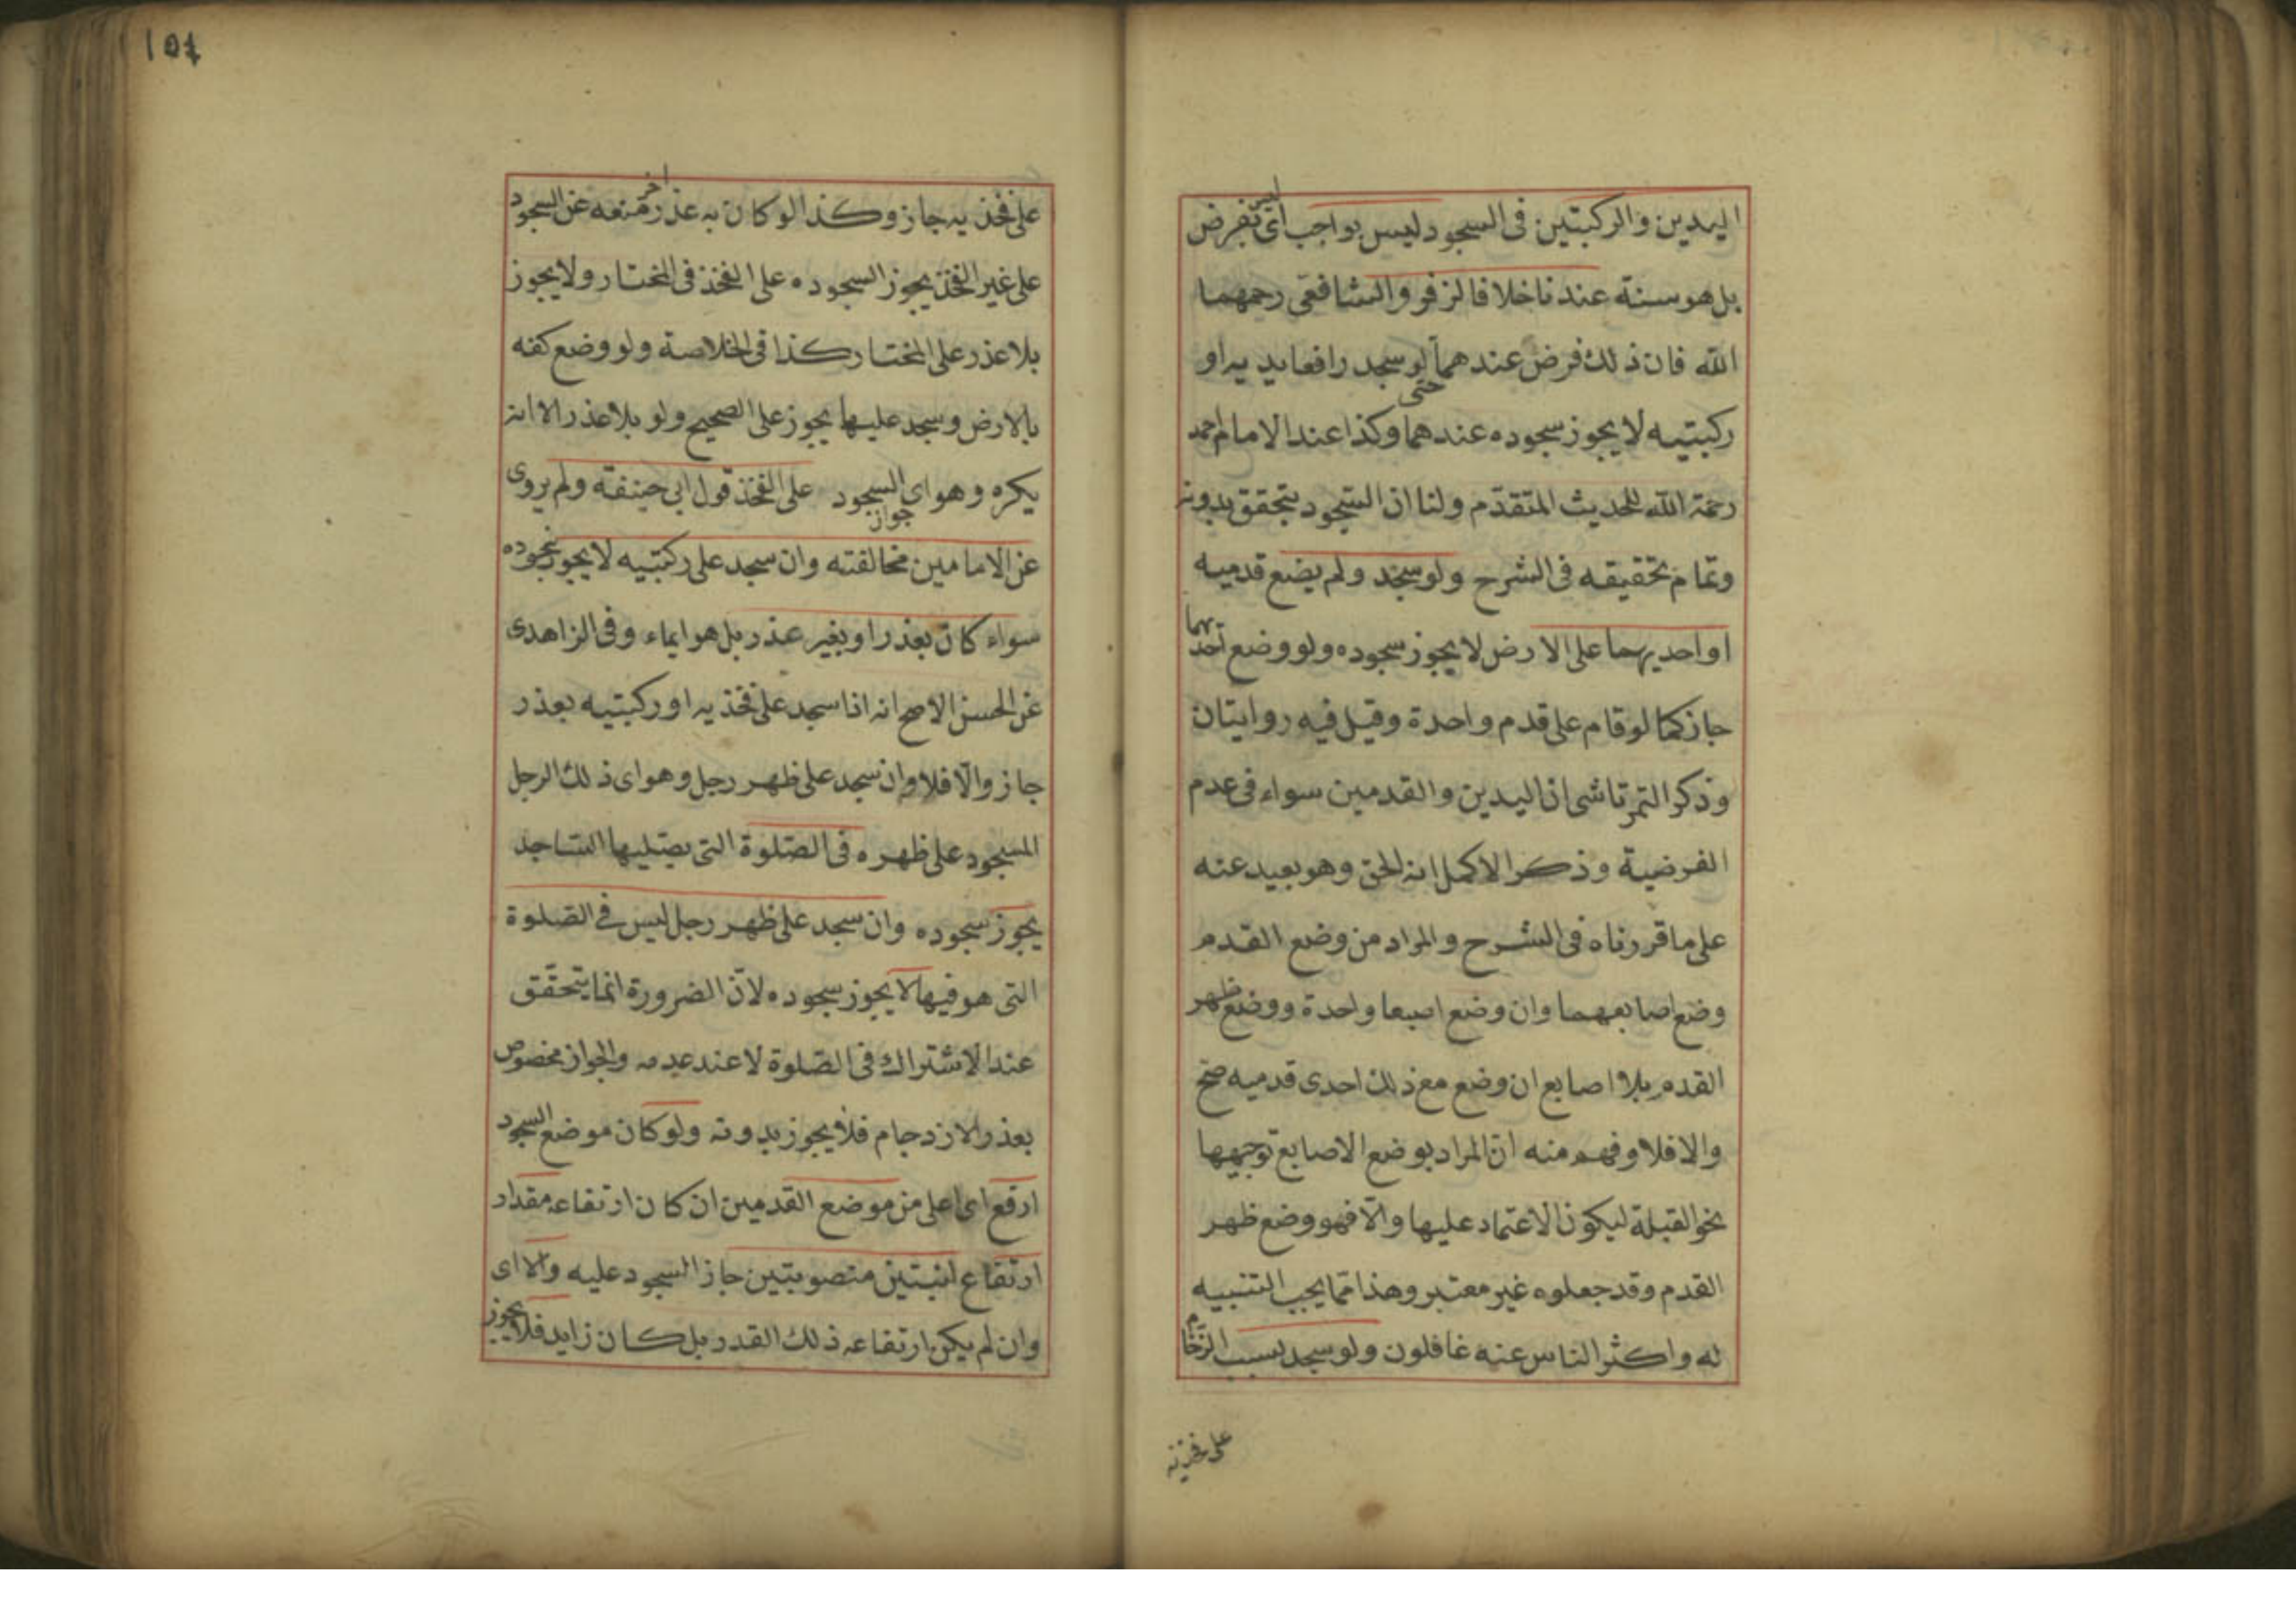 اليدين والركبتين فى السجود ليس بواجب اى ليس بفرض
بل هو سنة عندنا خلافا لزفر والشافعى رحمهما
الله فان ذلك فرض عندهما حتى لو سجد رافعا يديه او
ركبتيه لا يجوز سجوده عندهما وكذا عند الامام احمد
رحمة الله للحديث المتقدّم ولنا ان السّجود يتحقق بدونه
وتمام تحقيقه فى الشرح ولو سجد ولم يضع قدميه
او احديهما على الارض لا يجوز سجوده ولو وضع احديهما
جاز كما لو قام على قدم واحدة وقيل فيه روايتان
وذكر التمرتاشى ان اليدين والقدمين سواء فى عدم
الفرضية وذكر الاكمل انه الحق وهو بعيد عنه
على ما قررناه فى الشرح والمراد من وضع القدم
وضع اصابعهما وان وضع اصبعا واحدة ووضع ظهر
القدم بلا اصابع ان وضع مع ذلك احدى قدميه صح
والا فلا وفهم منه انّ المراد بوضع الاصابع توجيهها
نحو القبلة ليكون الاعتماد عليها والّا فهو وضع ظهر
القدم وقد جعلوه غير معتبر وهذا ممّا يجب التنبيه
له واكثر الناس عنه غافلون ولو سجد بسبب الزّحام
على فخذيه
١٥٤
على فخذيه جاز وكذا لو كان به عذر اخر منعه عن السجود
على غير الفخذ يجوز السجوده على الفخذ فى المختار ولا يجوز
بلا عذر على المختار كذا فى الخلاصة ولو وضع كفه
بالارض وسجد عليها يجوز على الصحيح ولو بلا عذر الا انه
يكره وهو اى جواز السجود على الفخذ قول ابى حنيفة ولم يروى
عن الامامين مخالفته وان سجد على ركبتيه لا يجوز سجوده
سواء كان بعذر او بغير عذر بل هو ايماء وفى الزاهدى
عن الحسن الاصح انه اذا سجد على فخذيه او ركبتيه بعذر
جاز والّا فلا وان سجد على ظهر رجل وهو اى ذلك الرجل
المسجود على ظهره فى الصّلوة التى يصّليها السّاجد
يجوز سجوده وان سجد على ظهر رجل ليس فى الصّلوة
التى هو فيها لا يجوز سجوده لانّ الضرورة انما يتحقّق
عند الاشتراك فى الصّلوة لا عند عدمه والجواز مخصوص
بعذر الازدحام فلا يجوز بدونه ولو كان موضع السجود
ارفع اى اعلى من موضع القدمين ان كان ارتفاعه مقدار
ارتفاع لبنتين منصوبتين جاز السجود عليه والا اى
وان لم يكن ارتفاعه ذلك القدر بل كان زايد فلا يجوز